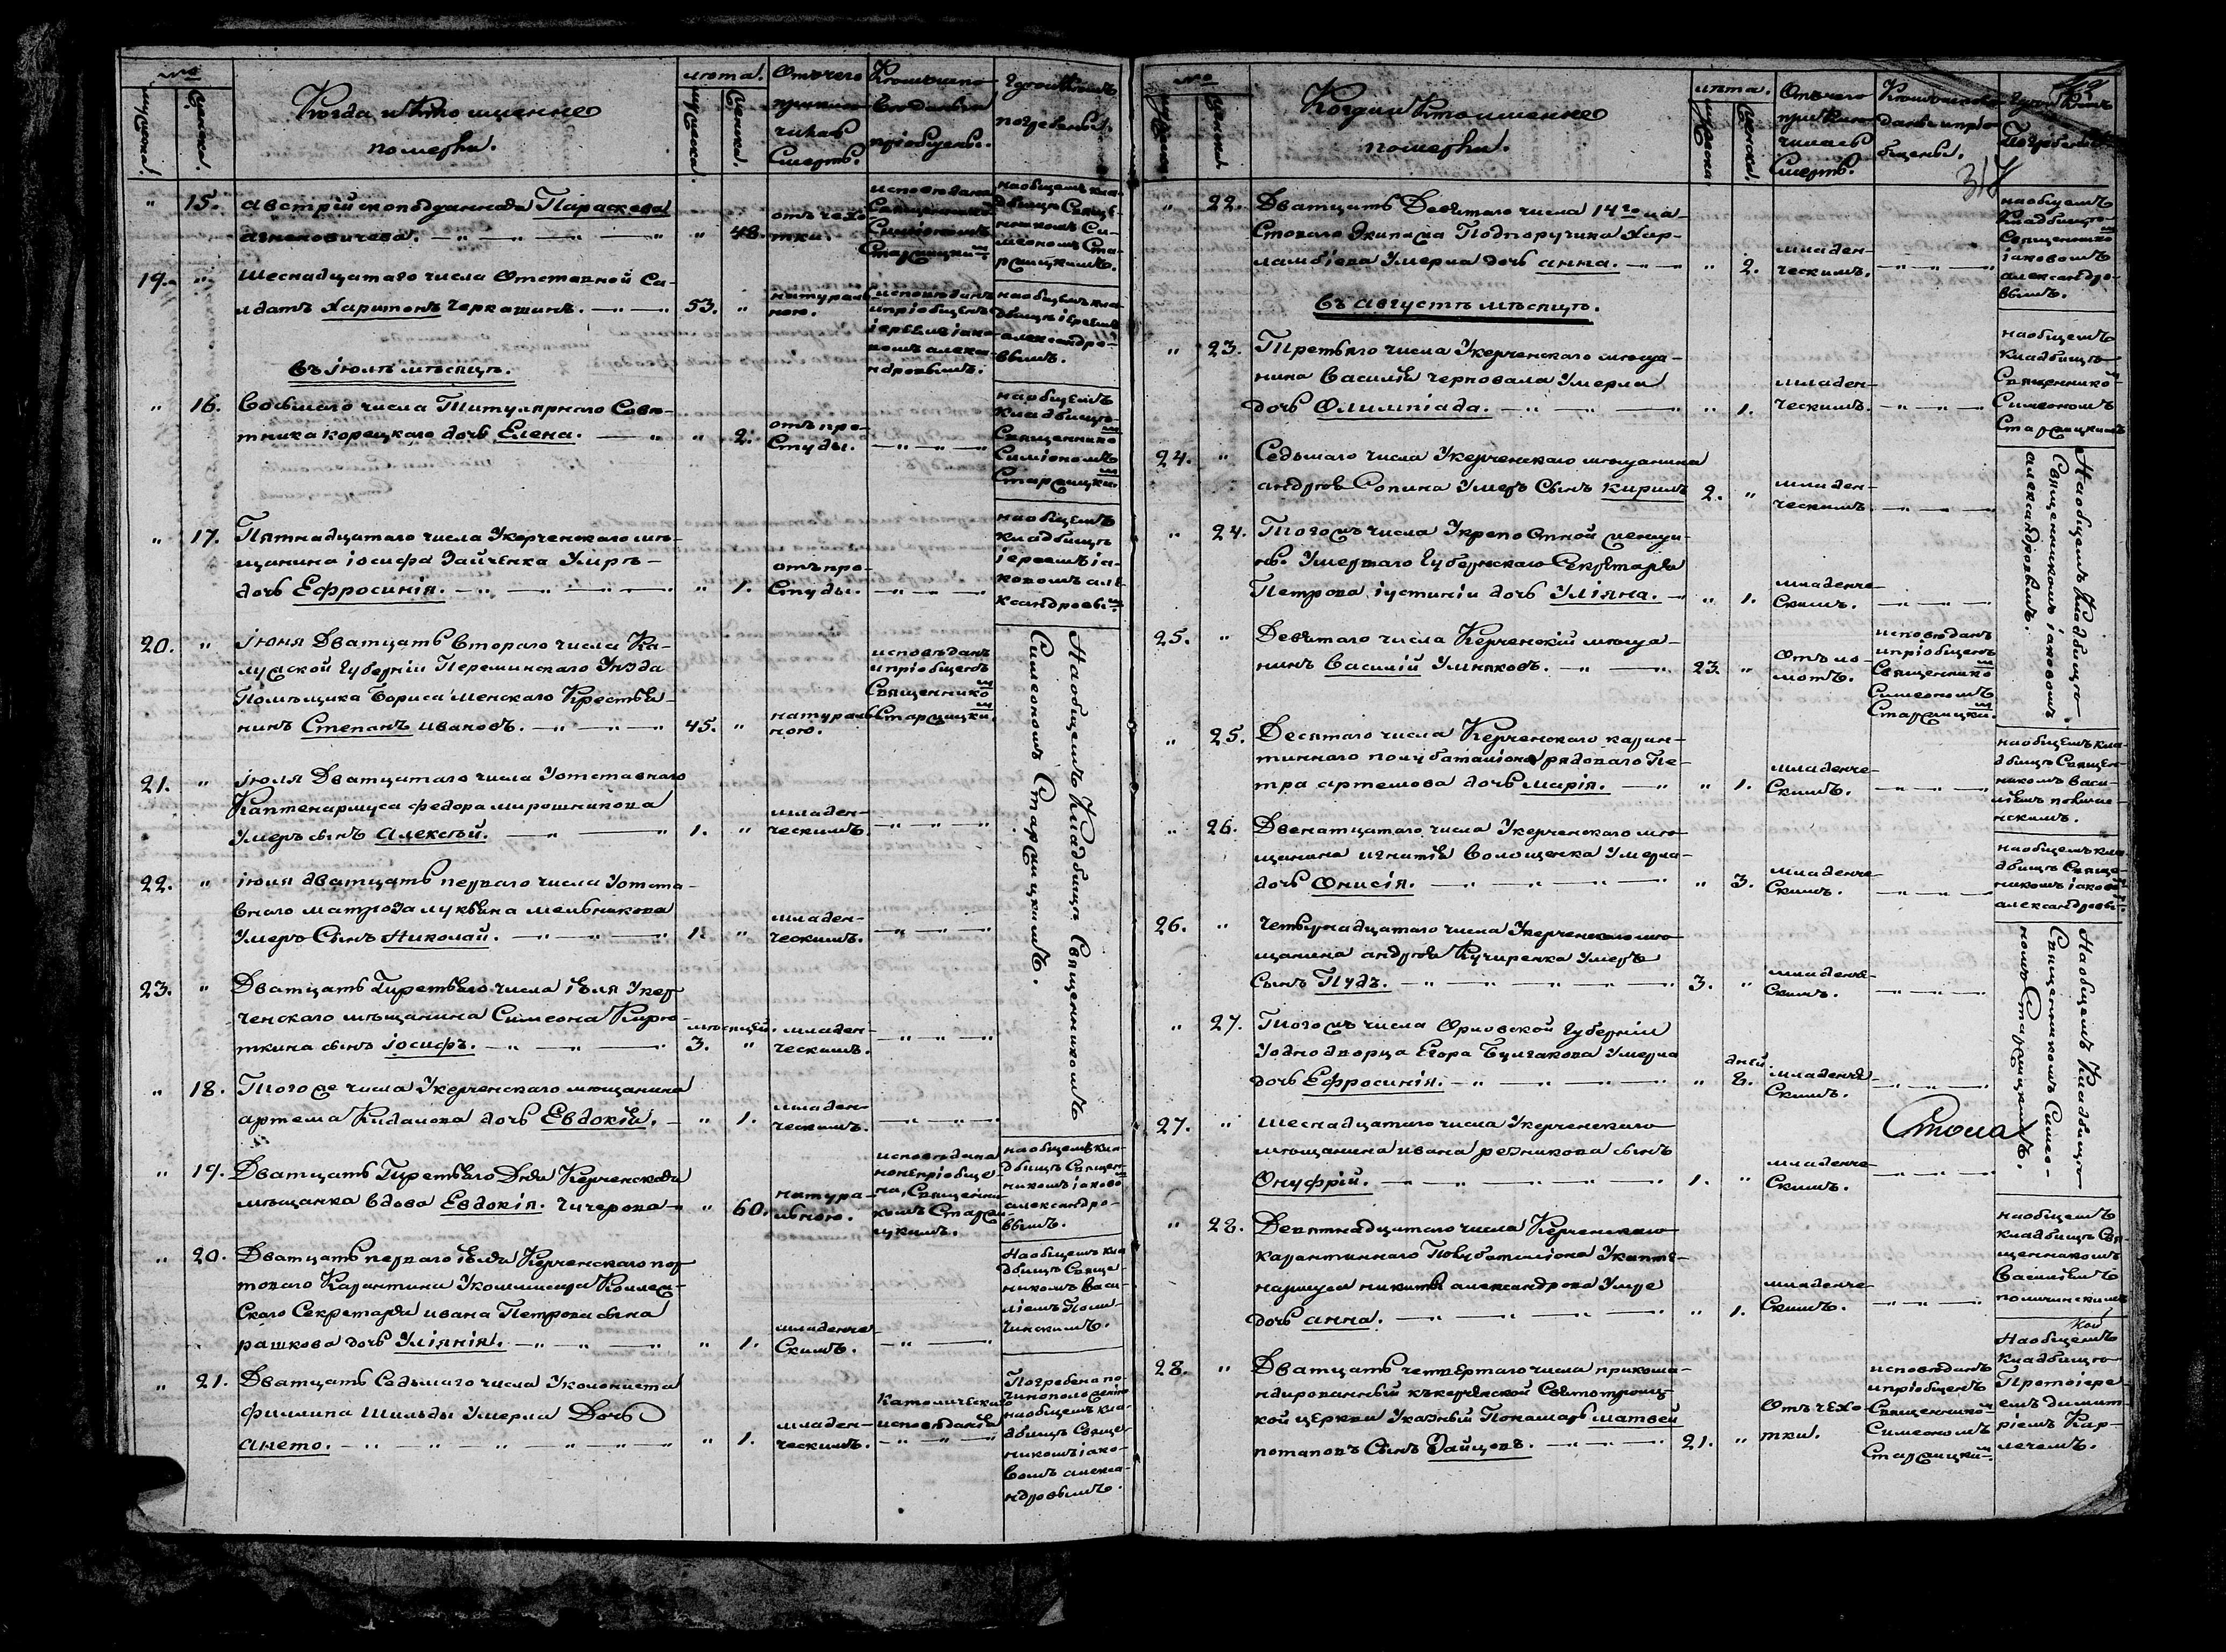 №
мужска. женска.
Когда и кто именно
померли.
лѣта.
мужска. женска.
Отъ чего
приклю-
чилась
Смерть.
пріобщены.
погребены.
" 15. австрійско подданная Параскева
" 48. отъ чехо-
тки.
19. " Шеснадцатаго числа Отставной Са-
лдатъ Харитонъ Черкашинъ. 53. "
натураль-
ною.
исповѣданъ
и пріобщенъ
на общемъ кла-
дбищѣ іереемъ
александро-
вымъ.
въ іюлѣ мѣсяцѣ.
" 16. Восьмаго числа Титулярнаго Совѣ-
тника корецкаго дочь Елена. " 2.
отъ про-
студы.
на общемъ
Кладбищѣ
Священнико
Симіономъ
Старжицки
" 17. Пятнадцатаго числа Укерченскаго мѣ-
щанина іосифа Зайченка Умрѣ-
дочь Ефросинія. " 1.
отъ про-
студы.
на общемъ
кладбищѣ
іереемъ іа-
ковомъ але-
ксандровы
20. " іюня Дватцать Втораго числа Ка-
лужской Губерніи Перемишскаго Уѣзда
Помѣщика Бориса Менскаго Крестья-
нинъ Степанъ ивановъ. 45. "
натураль-
ною.
исповѣданъ
и пріобщенъ
Священнико
Старжицки
На общемъ Кладбищѣ Священникомъ
Симеономъ Старжицкимъ.
21. " іюля Дватцатаго числа Уотставнаго
Каптенармуса федора мирошникова
Умеръ сынъ алексѣй. 1. "
младен-
ческимъ.
22. " іюля дватцать перваго числа Уотста-
внаго матроза лукьяна мельникова
Умеръ Сынъ Николай. 1. "
младен-
ческимъ.
23. " Дватцать Третьяго числа іюля Укер-
ченскаго мѣщанина Симеона Кирю-
ткина сынъ іосифъ. мѣсяцей. 3. "
младен-
ческимъ.
" 18. Того же числа Укерченскаго мѣщанина
артема Кидалова дочь Евдокія. " 1.
младен-
ческимъ.
" 19. Дватцать Третьяго Дня Керченская
мѣщанка вдова Евдокія. Чичерова " 60.
натура-
льною.
исповѣдана
но не пріобще-
на, Священни-
комъ Старжи-
цкимъ.
на общемъ кла-
дбищѣ Священ-
никомъ іаково
александро-
вымъ.
" 20. Дватцать перваго іюля Керченскаго пор-
товаго Карантина Укоммисара Коллеж-
скаго Секретаря ивана Петрова сына
рашкова дочь Уліянія. " 1.
младенче-
Скимъ.
На общемъ кла-
дбищѣ Свяще-
никомъ Васи-
ліемъ Поли-
чинскимъ.
" 21. Дватцать Седьмаго числа Уколониста
филлипа Шильды Умерла Дочь
ането. " 1.
младен-
ческимъ.
Католическаго
исповѣданія
Погребена по
чиноположенію
на общемъ кла-
дбищѣ Свяще-
никомъ іако-
вомъ алекса-
ндровымъ.
№
мужска. женска.
Когда и Кто именно
померли.
лѣта.
мужска. женска.
Отъ чего
приклю-
чилась
Смерть.
" 22. Дватцать Девятаго числа 14го ла-
Стоваго Экипажа Подпоручика Хар-
лампіева Умерла дочь анна. " 2.
младен-
ческимъ.
на общемъ
Кладбищѣ
Священнико
іаковомъ
александро-
вымъ.
въ августѣ мѣсяцѣ.
" 23. Третьяго числа Укерченскаго мѣща-
нина Василія черновала Умерла
дочь Олимпіада. " 1.
младен-
ческимъ.
на общемъ
кладбищѣ
Священнико
Симеономъ
Старжицкимъ
24. " Седьмаго числа Укерченскаго мѣщанина
андрѣя Сопина Умеръ Сынъ кирилъ 2. "
младен-
ческимъ.
На общемъ Кладбищѣ
Священникомъ іаковомъ
александровымъ.
" 24. Того жъ числа Укрепостной женщи-
ны Умершаго Губернскаго Секретаря
Петрова іустиніи дочь Уліяна. " 1.
младенче-
Скимъ.
25. " Девятаго числа Керченскій мѣща-
нинъ Василій Умняковъ. 23. "
отъ ло-
мотъ.
исповѣданъ
и пріобщенъ
Священнико
Симеономъ
Старжицки.
" 25. Десятаго числа Керченскаго каран-
тиннаго полубаталіона рядоваго Пе-
тра артемова дочь марія. " 1.
младенче-
Скимъ.
на общемъ кла-
дбищѣ Священ-
никомъ Васи-
ліемъ
" 26. Двенатцатаго числа Укерченскаго мѣ-
щанина игнатія Волощенка Умерла
дочь Онисія. " 3.
младенче-
Скимъ.
на общемъ кла-
дбищѣ Свяще-
никомъ іаково
александровы
26. " Четырнадцатаго числа Укерченскаго мѣ-
щанина андрѣя Кучиренка Умеръ
Сынъ Пудъ. 3. "
младенче-
Скимъ.
На общемъ Кладбищѣ
Священникомъ Симео-
номъ Старжицкимъ.
" 27. Того жъ числа Орловской Губерніи
Уоднодворца Егора Булгакова Умерла
дочь Ефросинія. " дней 8.
младенче-
Скимъ.
27. " Шеснадцатаго числа Укерченскаго
мѣщанина ивана резникова сынъ
Онуфрій. 1. "
младенче-
Скимъ.
" 28. Девятнадцатаго числа Керченскаго
карантиннаго Полубаталіона Укапте-
нармуса никиты александрова Умре
дочь анна. " 1.
младенче-
Скимъ.
на общемъ
кладбищѣ Свя-
щенникомъ
Василіемъ
поличинскимъ
28. " Дватцать четвертаго числа прикома-
ндированный къ керченской Святотроиц-
кой церкви Указный Пономарь матвей
потаповъ Сынъ Зайцовъ. 21. "
отъ чехо-
тки.
исповѣданъ
и пріобщенъ
Священнико
Симеономъ
Старжицки
На общемъ
Кладбищѣ
Протоіере-
емъ димит-
ріемъ Кар-